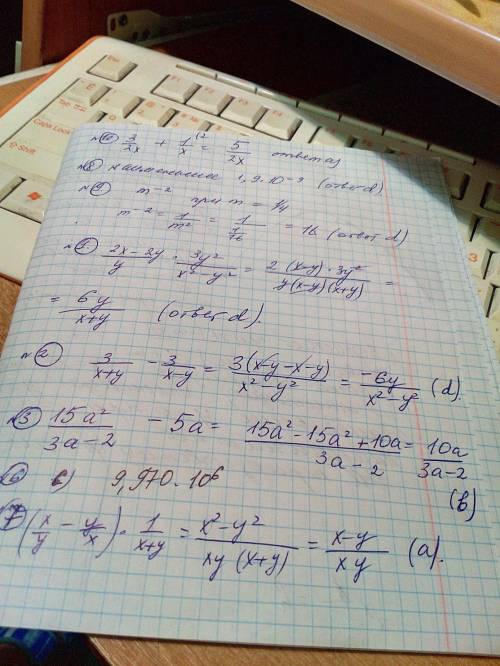 №10 3/2x + 1/x (2 = 5/2x ответ a)
№8 наименьшее 1,9·10⁻³ (ответ d)
№9 m⁻² при m = 1/4
m⁻² = 1/m² = 1/(1/16) = 16 (ответ d)
№1. (2x-2y)/y · 3y²/(x²-y²) = 2(x-y)·3y²/(y(x-y)(x+y)) =
= 6y/(x+y) (ответ d).
№2 3/(x+y) - 3/(x-y) = 3(x-y-x-y)/(x²-y²) = -6y/(x²-y²) (d).
№3 15a²/(3a-2) - 5a = (15a²-15a²+10a)/(3a-2) = 10a/(3a-2)
(b)
№6 c) 9,970·10⁶
№7 (x/y - y/x)·1/(x+y) = (x²-y²)/(xy(x+y)) = (x-y)/(xy) (a).
F1
F2
F3
Tab
Caps Lock
Shift